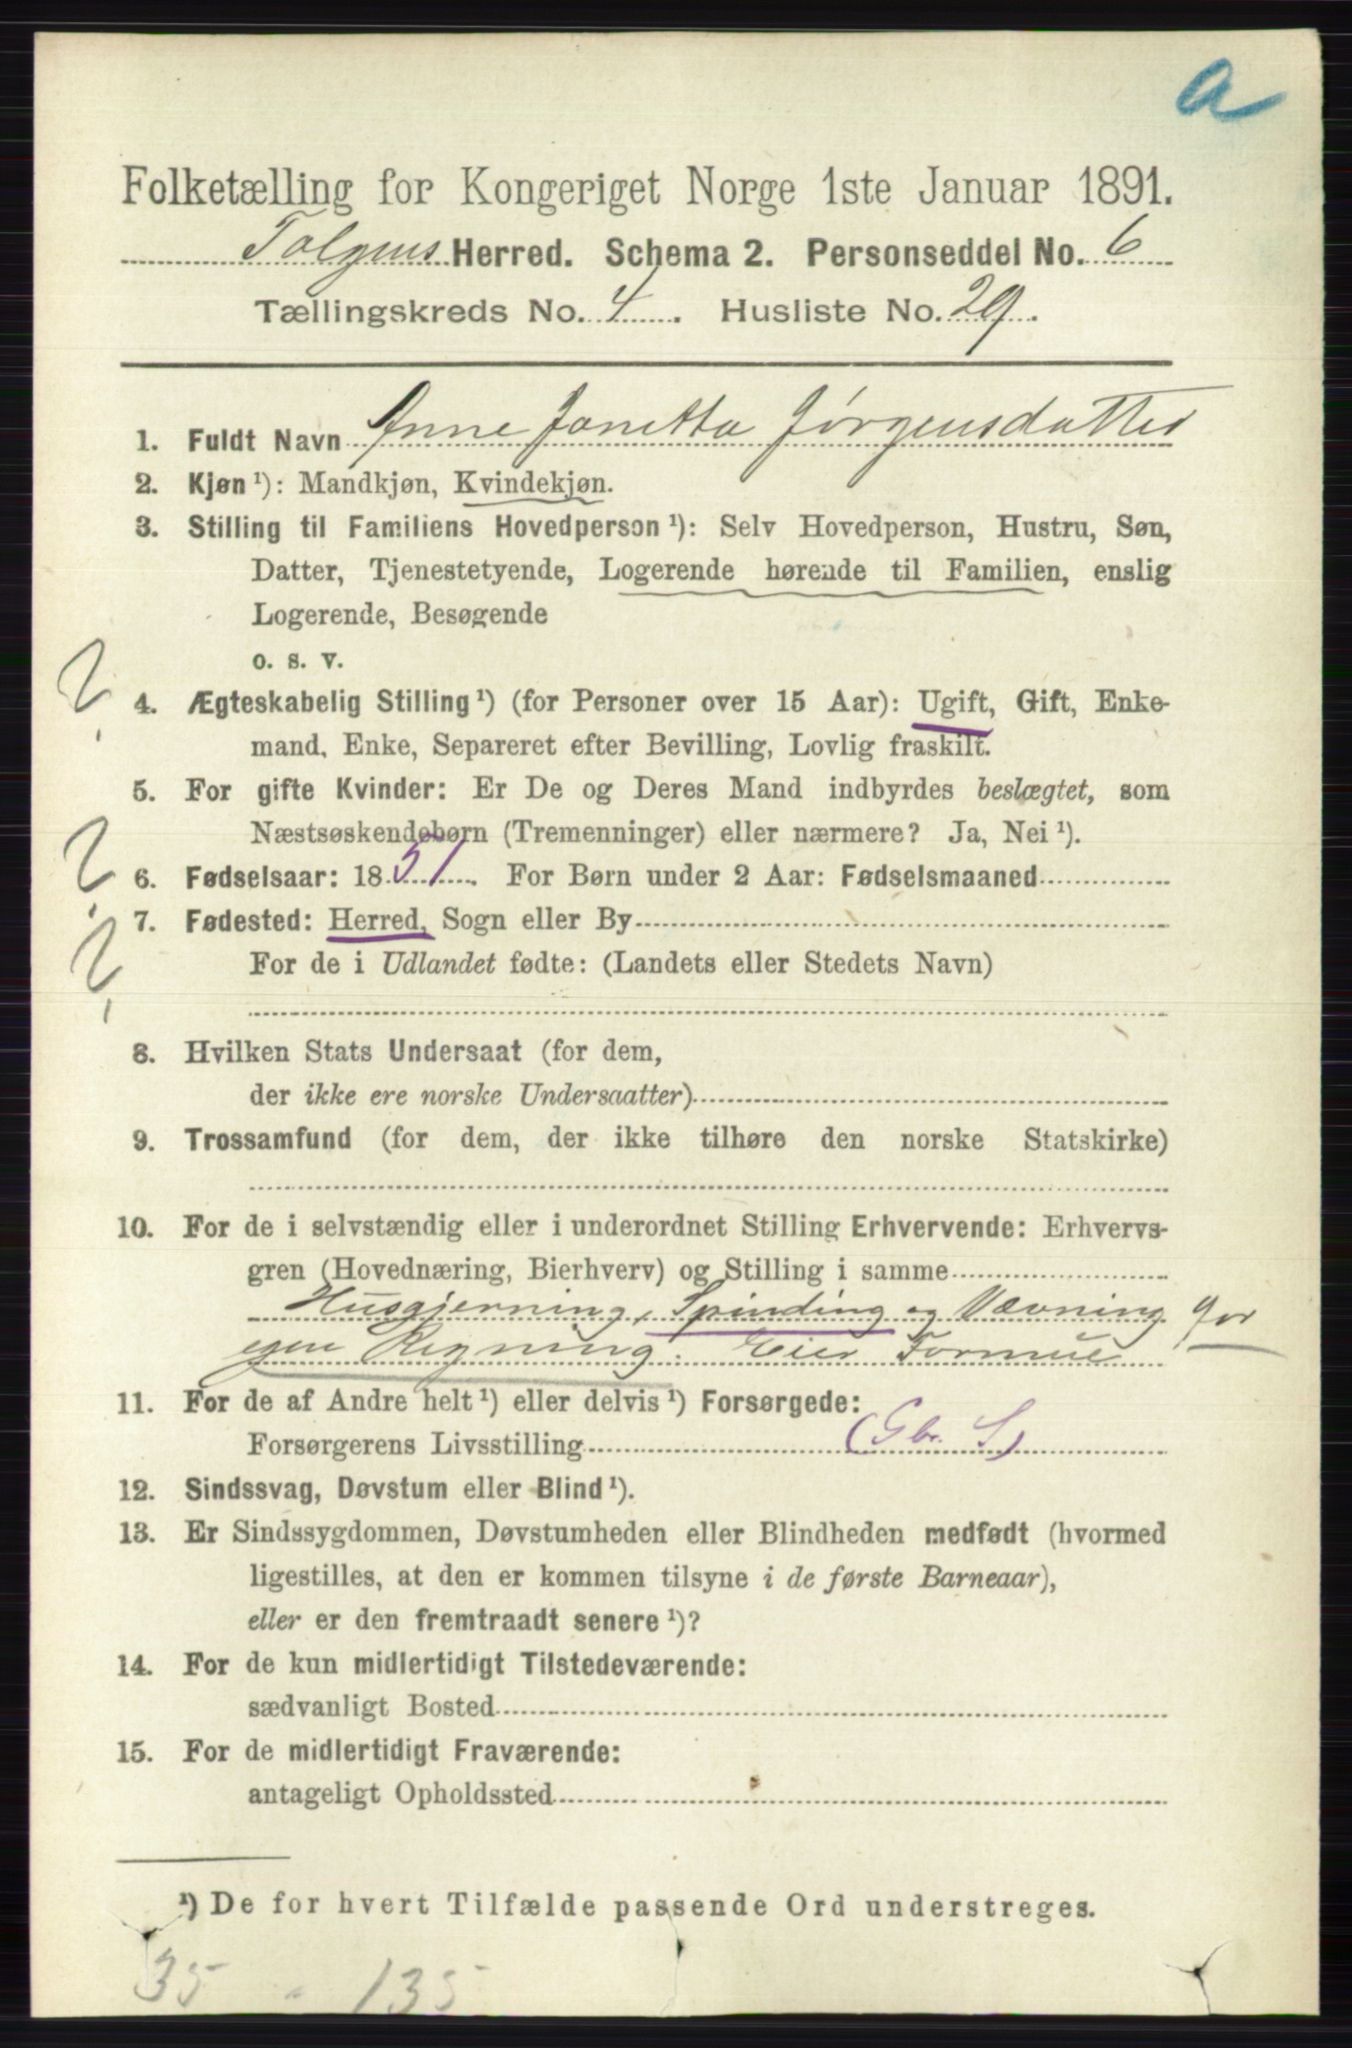 a
Folketælling for Kongeriget Norge 1ste Januar 1891.
Tolgens Herred. Schema 2. Personseddel No. 6
Tællingskreds No. 4. Husliste No. 29.
1. Fuldt Navn Anne Janetta Jørgensdatter
2. Kjøn ¹): Mandkjøn, Kvindekjøn.
3. Stilling til Familiens Hovedperson ¹): Selv Hovedperson, Hustru, Søn,
Datter, Tjenestetyende, Logerende hørende til Familien, enslig
Logerende, Besøgende
o. s. v.
? 4. Ægteskabelig Stilling ¹) (for Personer over 15 Aar): Ugift, Gift, Enke-
mand, Enke, Separeret efter Bevilling, Lovlig fraskilt.
5. For gifte Kvinder: Er De og Deres Mand indbyrdes beslægtet, som
Næstsøskendebørn (Tremenninger) eller nærmere? Ja, Nei ¹).
? 6. Fødselsaar: 1851. For Børn under 2 Aar: Fødselsmaaned
? 7. Fødested: Herred, Sogn eller By
For de i Udlandet fødte: (Landets eller Stedets Navn)
8. Hvilken Stats Undersaat (for dem,
der ikke ere norske Undersaatter)
9. Trossamfund (for dem, der ikke tilhøre den norske Statskirke)
10. For de i selvstændig eller i underordnet Stilling Erhvervende: Erhvervs-
gren (Hovednæring, Bierhverv) og Stilling i samme
Husgjerning, Spinding og Vævning for
egen Regning. Eier Formue
11. For de af Andre helt ¹) eller delvis ¹) Forsørgede:
Forsørgerens Livsstilling (Gbr. S)
12. Sindssvag, Døvstum eller Blind ¹).
13. Er Sindssygdommen, Døvstumheden eller Blindheden medfødt (hvormed
ligestilles, at den er kommen tilsyne i de første Barneaar),
eller er den fremtraadt senere ¹)?
14. For de kun midlertidigt Tilstedeværende:
sædvanligt Bosted
15. For de midlertidigt Fraværende:
antageligt Opholdssted
¹) De for hvert Tilfælde passende Ord understreges.
35 - 135